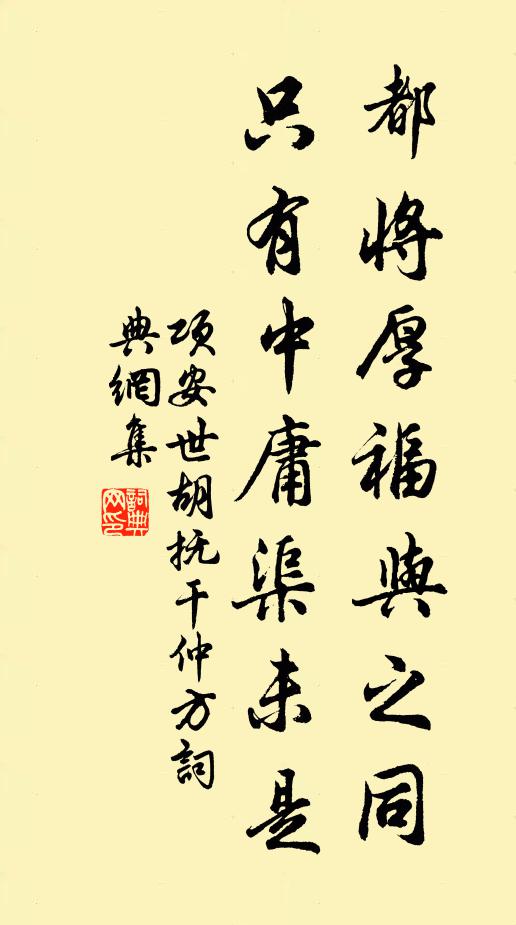 都將厚福與之同
只有中庸渠未是
项安世胡抚干仲方詞
典網集
詞典
网印